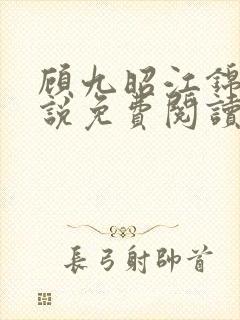 顾九昭江錦
說免費閱讀
長弓射帥首